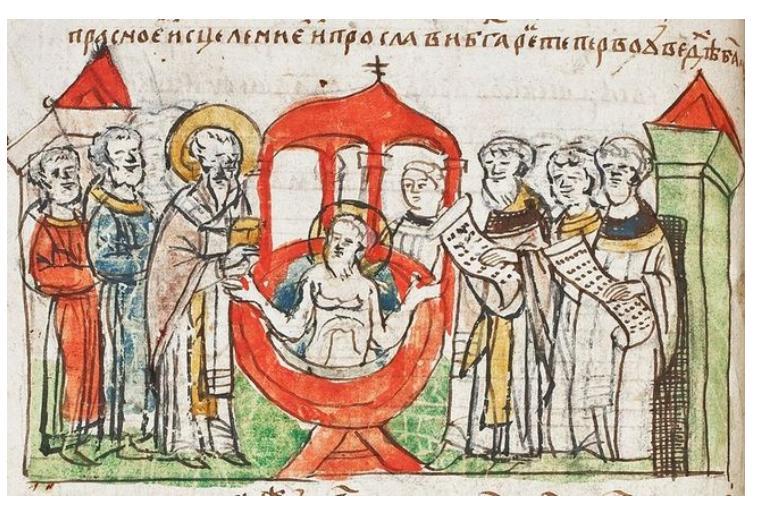 прасное исцеление и прослави бга ре теперво ꙋведѣ ба